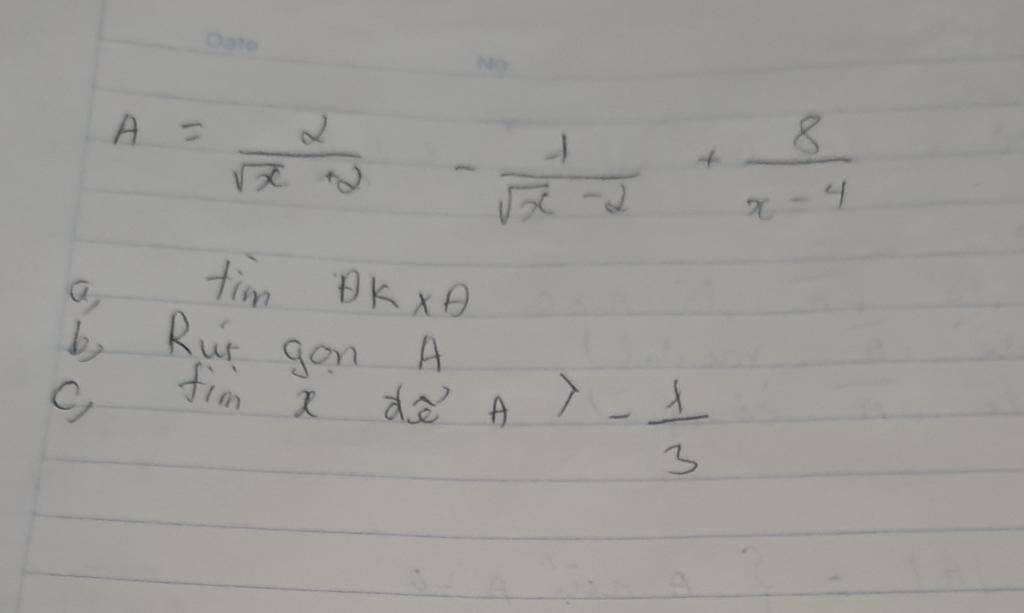 Date
No
A = 2/(√x +2) - 1/(√x -2) + 8/(x-4)
a, tìm ĐKXĐ
b, Rút gọn A
c, tìm x để A > -1/3